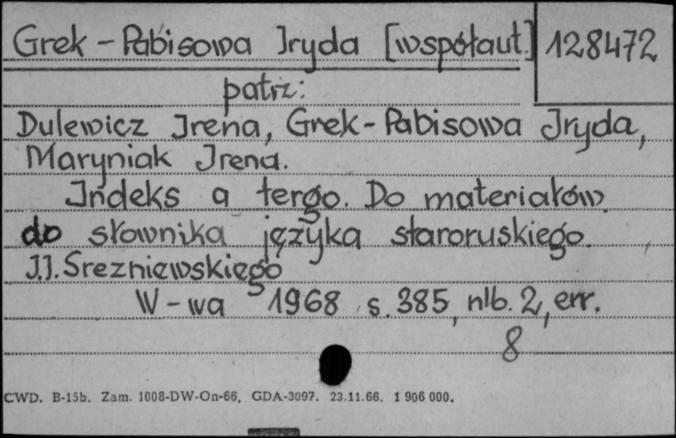 Grek-Pabisowa Iryda [współaut.] 128472
patrz:
Dulewicz Irena, Grek-Pabisowa Iryda,
Maryniak Irena.
Indeks a tergo. Do materiałów
do słownika języka staroruskiego.
I.I. Srezniewskiego
W-wa 1968 s. 385, nlb. 2, err.
8
CWD. B-15b. Zam. 1008-DW-On-66. GDA-3097. 23.11.66. 1 906 000.